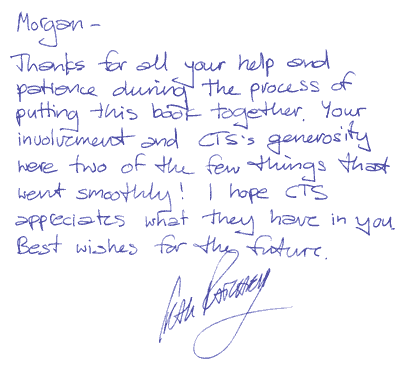 Morgan –
Thanks for all your help and
patience during the process of
putting this book together. Your
involvment and CTS's generosity
were two of the few things that
went smoothly! I hope CTS
appreciates what they have in you.
Best wishes for the future.